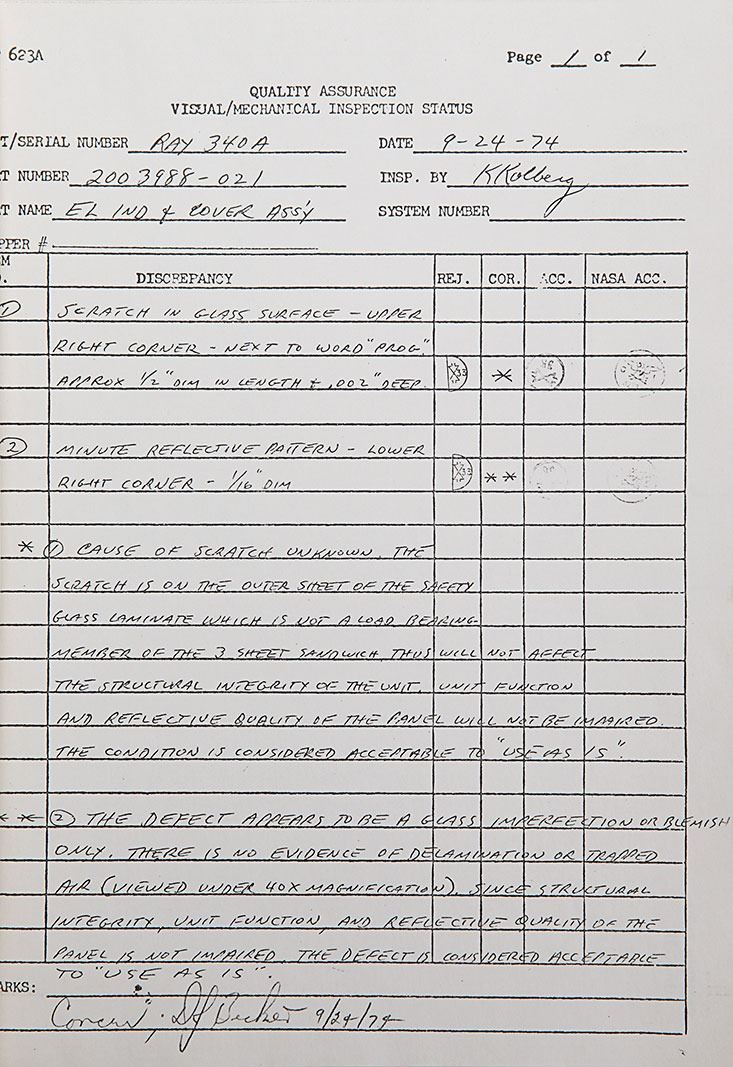 623A
Page 1 of 1
QUALITY ASSURANCE
VISUAL/MECHANICAL INSPECTION STATUS
T/SERIAL NUMBER RAY 340A DATE 9-24-74
T NUMBER 2003988-021 INSP. BY K Kolberg
T NAME EL IND & COVER ASS'Y SYSTEM NUMBER
PPER #
M
. DISCREPANCY REJ. COR. ACC. NASA ACC.
1 SCRATCH IN GLASS SURFACE - UPPER
RIGHT CORNER - NEXT TO WORD "PROG".
APPROX 1/2" DIM IN LENGTH & .002" DEEP. *
2 MINUTE REFLECTIVE PATTERN - LOWER
RIGHT CORNER - 1/16" DIM * *
* 1 CAUSE OF SCRATCH UNKNOWN. THE
SCRATCH IS ON THE OUTER SHEET OF THE SAFETY
GLASS LAMINATE WHICH IS NOT A LOAD BEARING
MEMBER OF THE 3 SHEET SANDWICH, THUS WILL NOT AFFECT
THE STRUCTURAL INTEGRITY OF THE UNIT. UNIT FUNCTION
AND REFLECTIVE QUALITY OF THE PANEL WILL NOT BE IMPAIRED.
THE CONDITION IS CONSIDERED ACCEPTABLE TO "USE AS IS".
* * 2 THE DEFECT APPEARS TO BE A GLASS IMPERFECTION OR BLEMISH
ONLY. THERE IS NO EVIDENCE OF DELAMINATION OR TRAPPED
AIR (VIEWED UNDER 40X MAGNIFICATION). SINCE STRUCTURAL
INTEGRITY, UNIT FUNCTION, AND REFLECTIVE QUALITY OF THE
PANEL IS NOT IMPAIRED. THE DEFECT IS CONSIDERED ACCEPTABLE
TO "USE AS IS".
ARKS:
Concur; D J Becker 9/24/74